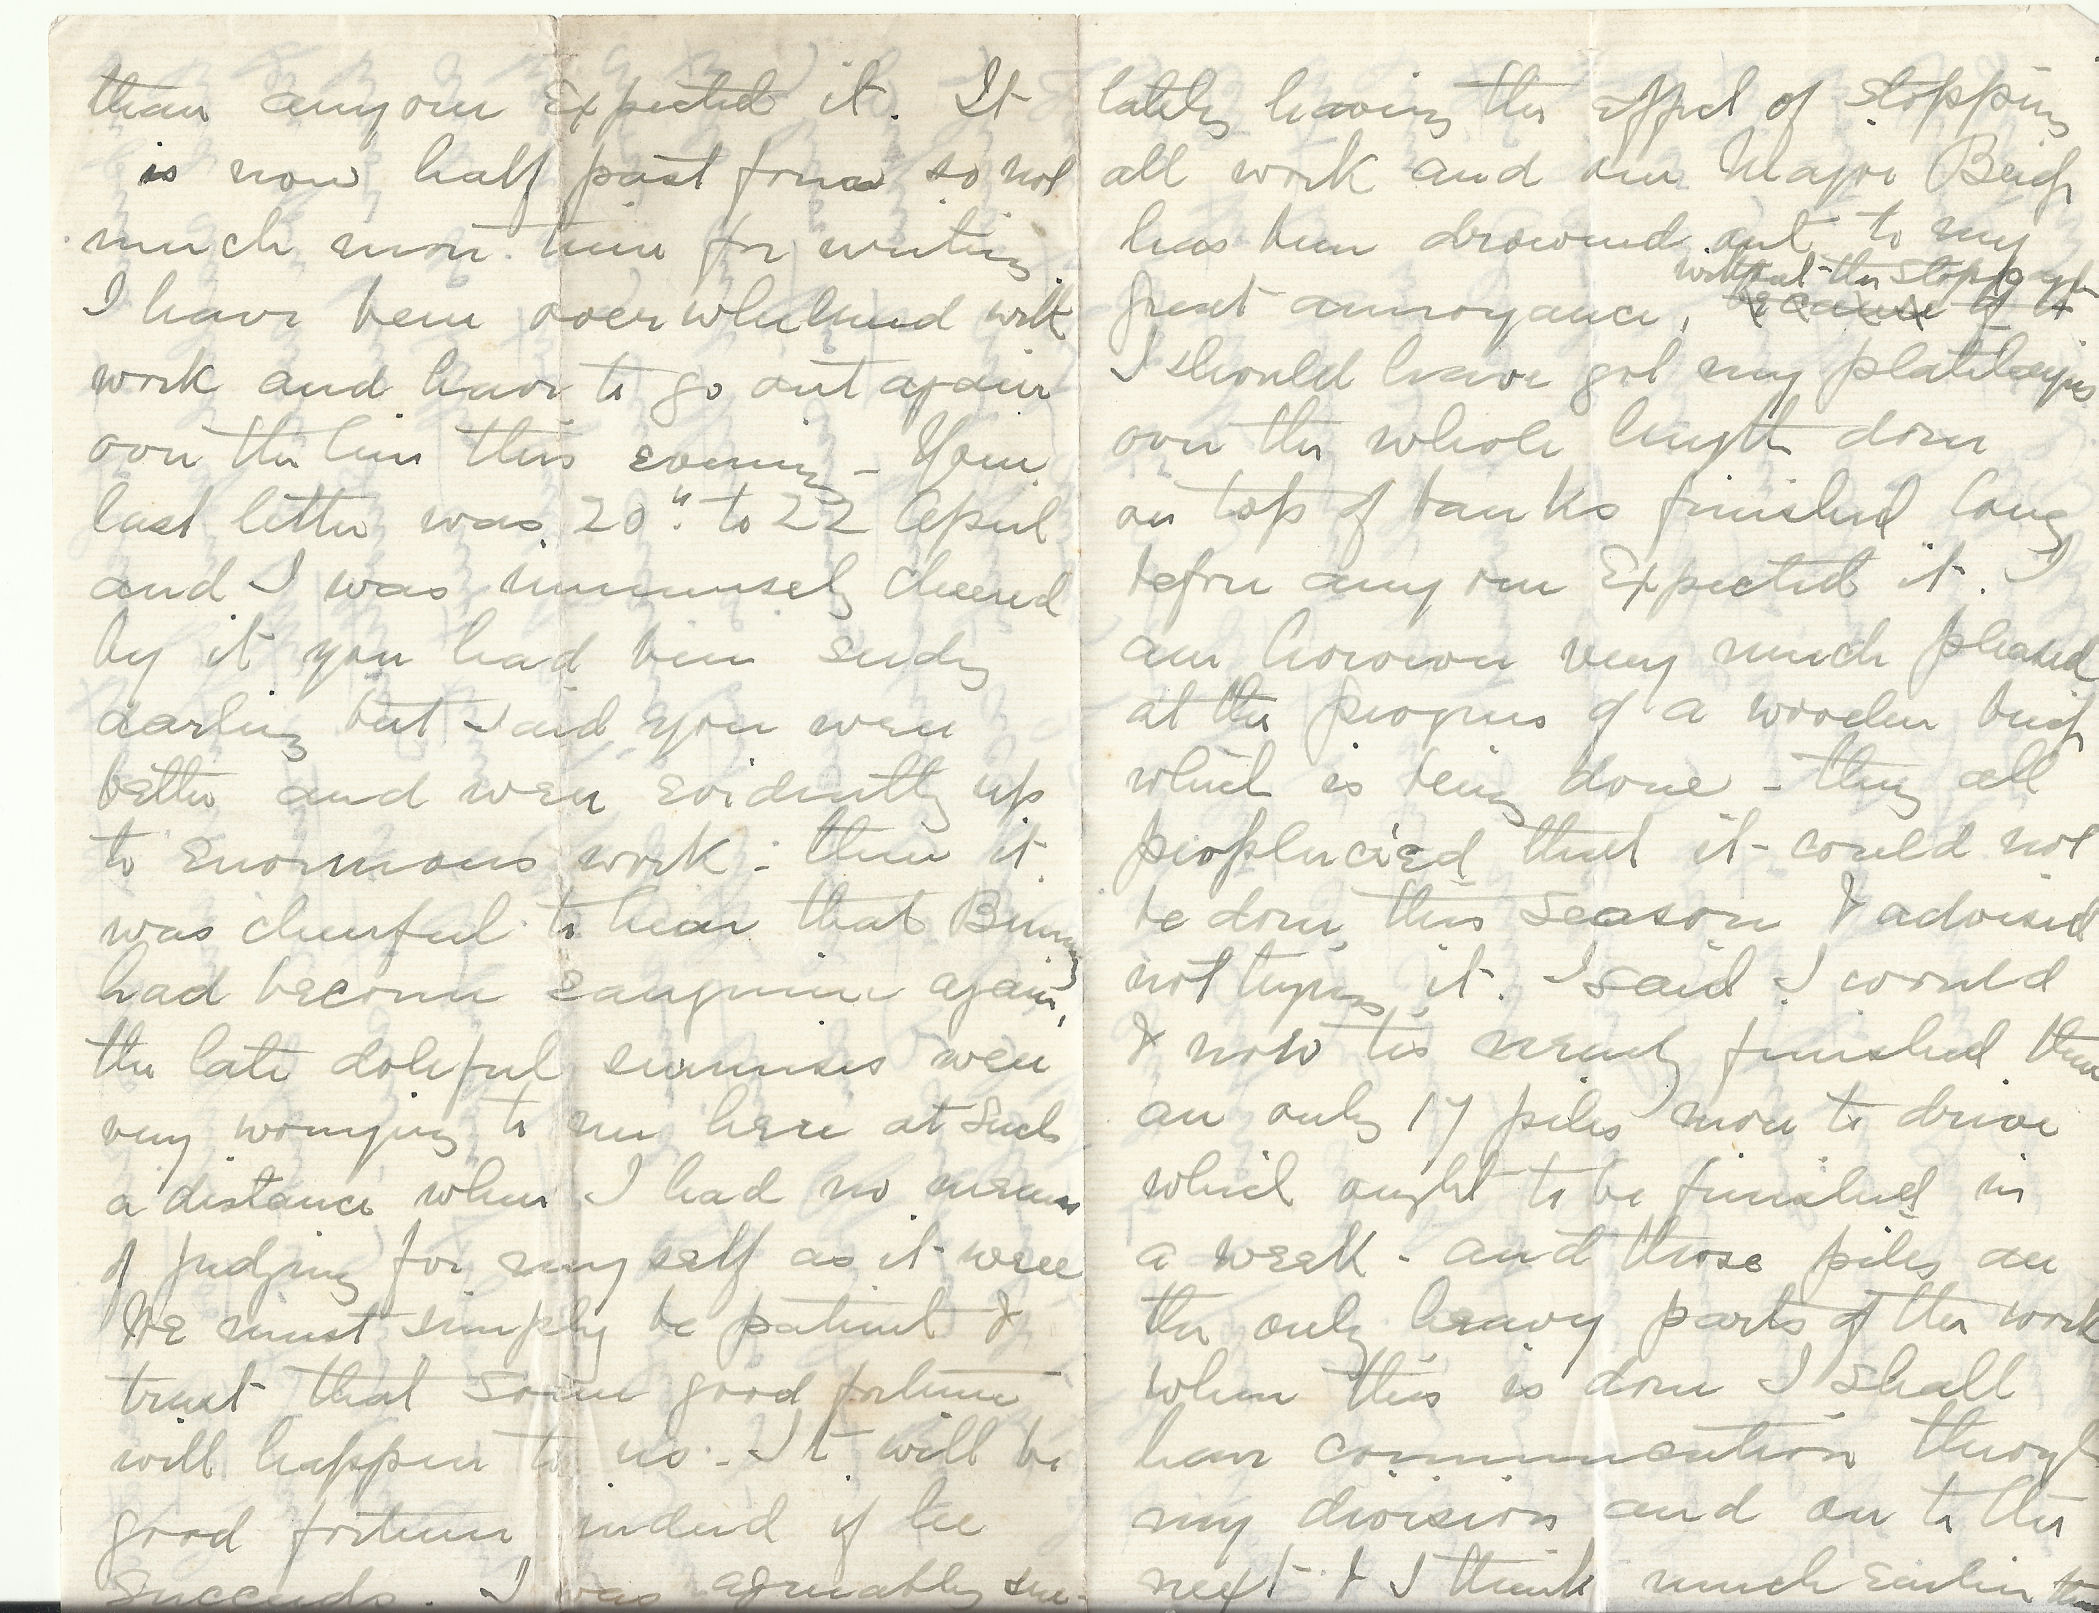 than anyone expected it. It
is now half past four so not
much more time for writing
I have been overwhelmed with
work and have to go out again
over the line this evening - Your
last letter was 20th to 22 April
and I was immensely cheered
by it you had been seedy
darling but said you were
better and were evidently up
to enormous work - then it
was cheerful to hear that Bunny
had become sanguine again,
the late doleful surmises were
very worrying to me here at such
a distance when I had no means
of judging for myself as it were
We must simply be patient &
trust that some good fortune
will happen to us - It will be
good fortune indeed if he
succeeds. I was agreeably sur-
lately having the effect of stopping
all work and our Major Bridge
has been drowned out to my
without the stoppage
great annoyance, because of it
I should have got my platelaying
over the whole length done
on top of banks finished long
before anyone expected it. I
am however very much pleased
at the progress of a wooden bridge
which is being done - they all
that it could not
be done this season & advised
not trying it. I said I would
& now tis nearly finished there
are only 17 piles more to drive
which ought to be finished in
a week - and those piles are
the only heavy parts of the work
when this is done I shall
have communication through
my division and on to the
next & I think much earlier than